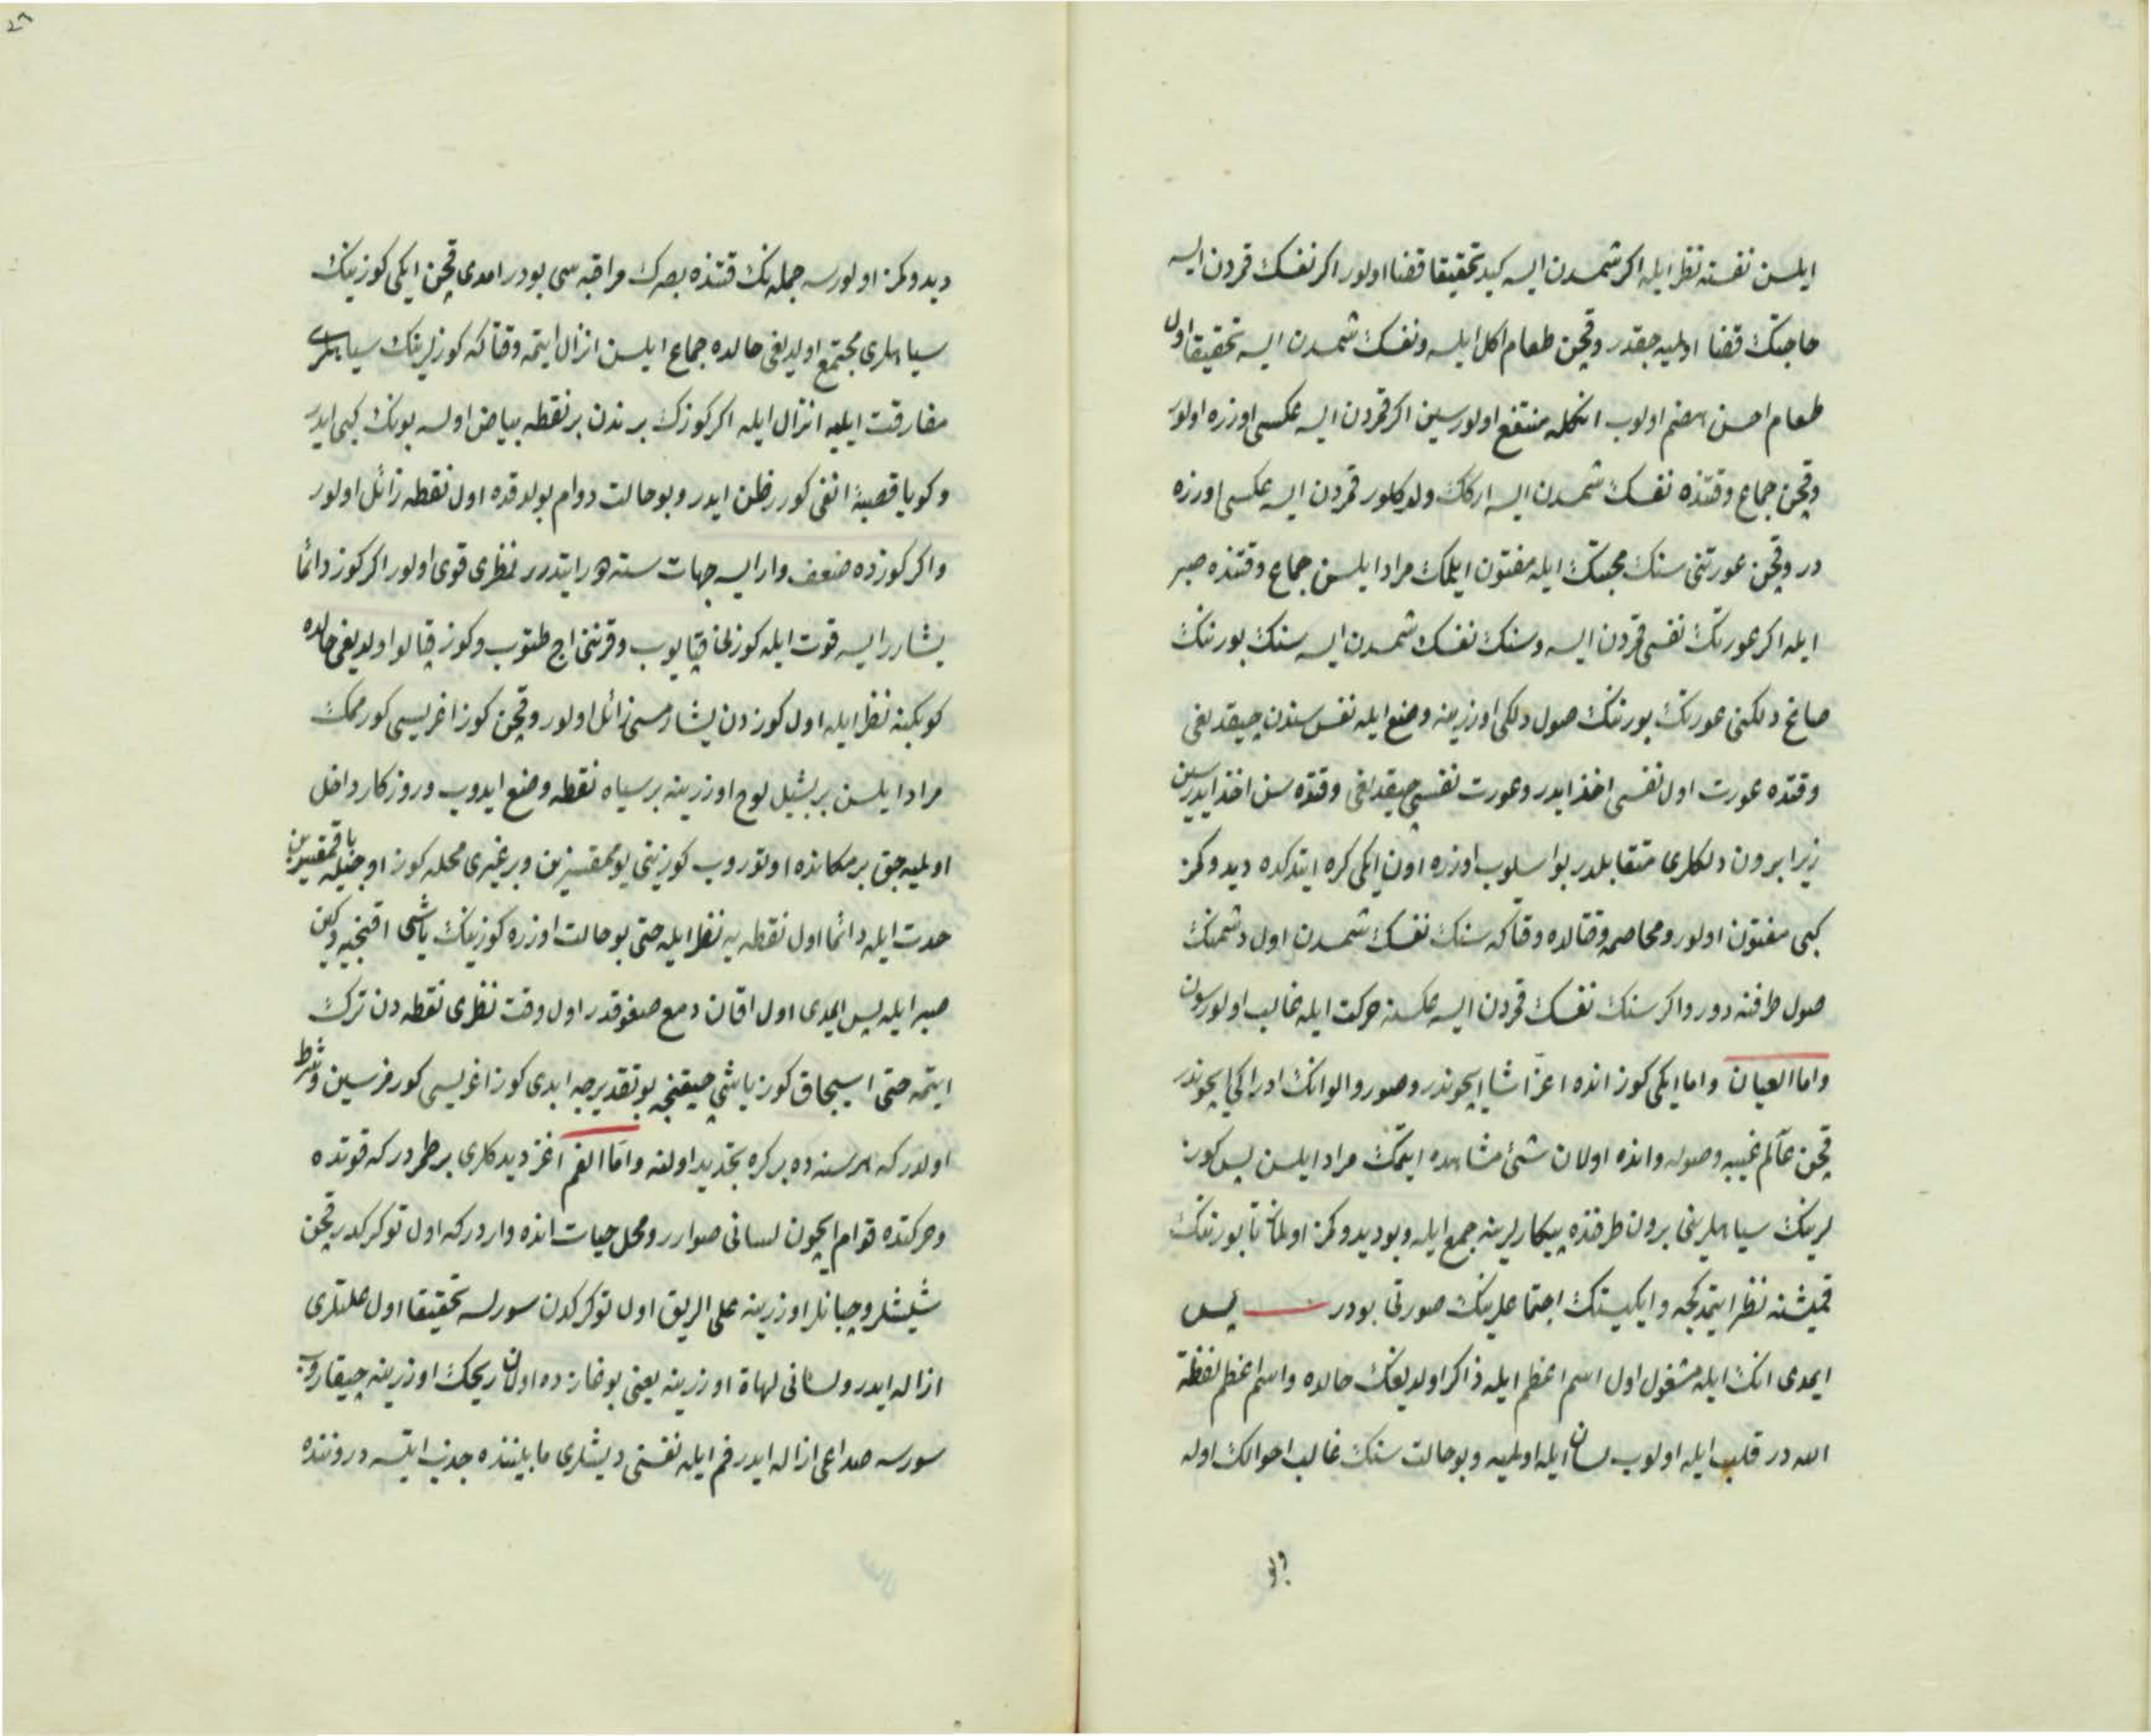 ايلسن نفسنه نظر ايله اكر شمسدن ايسه كيد تحقيقا قضا اولور اكر نفسك قمردن ايسه
حاجتك قضا اولميه جقدر وقچن طعام اكل ايلسه ونفسك شمسدن ايسه تحقيقا اول
طعام احسن هضم اولوب انكله منتفع اولورسين اكر قمردن ايسه عكسى اوزره اولور
وقچن جماع وقتنده نفسك شمسدن ايسه اركك ولد كلور قمردن ايسه عكسى اوزره
در وقچن عورتنى سنك محبتك ايله مفتون ايلمك مراد ايلسن جماع وقتنده صبر
ايله اكر عورتك نفسى قمردن ايسه وسنك نفسك شمسدن ايسه سنك بورنك
صاغ دلكنى عورتك بورنك صول دلكى اوزرينه وضع ايله نفس سندن چيقديغى
وقتده عورت اول نفسى اخذ ايدر وعورت نفسى چيقديغى وقتده سن اخذ ايدرسين
زيرا برون دلكلرى متقابلدر بو اسلوب اوزره اون ايكى كره ايتدكده ديدوكمز
كبى مفتون اولور ومخاصمه وقتالده وقتاكه سنك نفسك شمسدن اول دشمنك
صول طرفنه دور واكر سنك نفسك قمردن ايسه عكسنه حركت ايله غالب اولورسون
واما العيان واما ايكى كوز انده اعز اشيا ايچوندر وصور والوانك ادراكى ايچوندر
قچن عالم غيبه وصوله وانده اولان شئ مشاهده ايتمك مراد ايلسن پس كوز
لرينك سياهلرينى برون طرفنده پيكارلرينه جمع ايله وبو ديدوكمز اولماز تا بورنك
قميشنه نظر ايتمدكجه وايكيسنك اجتماعلرينك صورتى بودر پس
ايمدى انك ايله مشغول اول اسم اعظم ايله ذاكر اولديغك حالده واسم اعظم لفظة
الله در قلب ايله اولوب لسان ايله اولميه وبو حالت سنك غالب احوالك اوله
ديدوكمز اولورسه جمله نك قتنده بصرك مراقبه سى بودر امدى قچن ايكى كوزينك
سياهلرى مجتمع اولديغى حالده جماع ايلسن انزال ايتمه وقتاكه كوزلرينك سياهلرى
مفارقت ايليه انزال ايله اكر كوزك برندن بر نقطه بياض اولسه بونك كبى ايدر
وكويا قصبۀ انفى كورر ظن ايدر وبو حالت دوام بولدقده اول نقطه زائل اولور
واكر كوزده ضعف وار ايسه جهات سته دور ايتدرر نظرى قوى اولور اكر كوز دائما
يشارر ايسه قوت ايله كوزلرين قپايوب وقرننى اج طتوب وكوز قپالو اولديغى حالده
كوبكنه نظر ايله اول كوزدن يشارمسى زائل اولور وقچن كوز اغريسى كورممك
مراد ايلسن بر يشيل لوح اوزرينه بر سياه نقطه وضع ايدوب وروزكار داخل
اولميه جق بر مكانده اوتوروب كوزينى يوممقسزين وبر غيرى محله كوز اوجيله باقمقسزين
حدت ايله دائما اول نقطه يه نظر ايله حتى بو حالت اوزره كوزينك ياشى اقنجيه دكين
صبر ايله پس ايمدى اول اقان دمع صغوقدر اول وقت نظرى نقطه دن ترك
ايتمه حتى اسيجاق كوز ياشى چيقنجه بو تقديرجه ابدى كوز اغريسى كورمزسين وشرط
اولدر كه هر سنه ده بر كره تجديد اولنه واما الفم اغز ديدكلرى بر طمردر كه قوتده
وحركتده قوام ايچون لسانى صوارر ومحل حيات انده واردر كه اول توكركدر قچن
شيشلر وچبانلر اوزرينه على الريق اول توكركدن سورلسه تحقيقا اول علتلرى
ازاله ايدر ولسانى لهاة اوزرينه يعنى بوغازده اولان ريحك اوزرينه چيقاروب
سورسه صداعى ازاله ايدر فم ايله نفسنى ديشلرى مابيننده جذب ايتسه دروننده